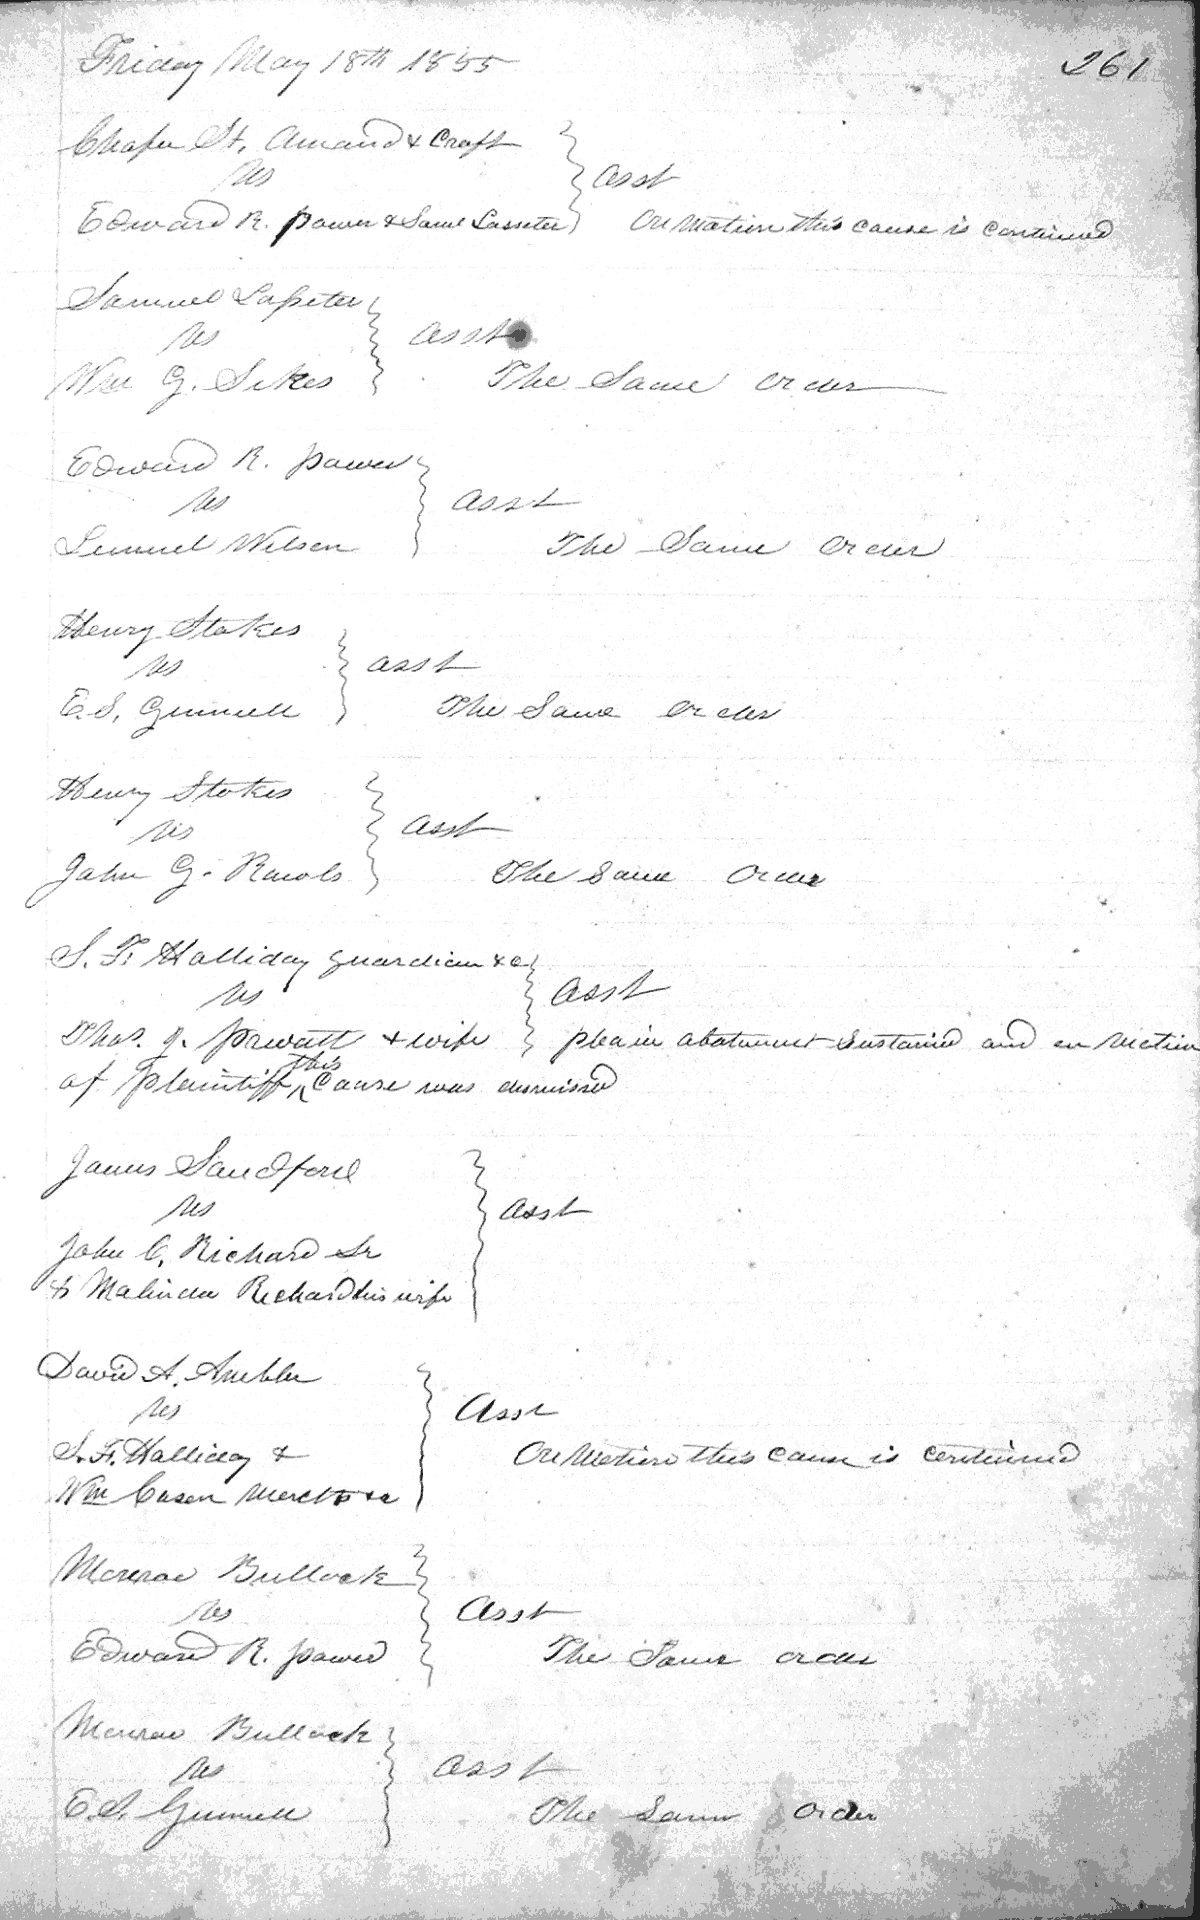 Friday May 18th 1855 261
Chafer St. Amand & Craft
vs
asst
Edward R. Power & Saml Lasseter On Motion this cause is continued
Samuel Lasseter
vs
asst
Wm G. Sikes The Same order
Edward R. Power
vs asst
Lemuel Wilson The Same order
Henry Stokes
vs asst
E. S. Gunnell The Same order
Henry Stokes
vs asst
John G. Rawls The Same Order
S. F. Halliday guardian &c
vs asst
Thos. J. Prevatt & wife plea in abatement Sustained and on Motion
this
of Plaintiff Cause was dismissed
James Sandford
vs asst
John C. Richard Sr
& Malinda Richard his wife
David A. Ambler
vs Asst
S. F. Halliday & On Motion this cause is continued
Wm Cason Merchts &c
Monroe Bullock
vs Asst
Edward R. Power The Same order
Monroe Bullock
vs asst
E. S. Gunnell The Same order